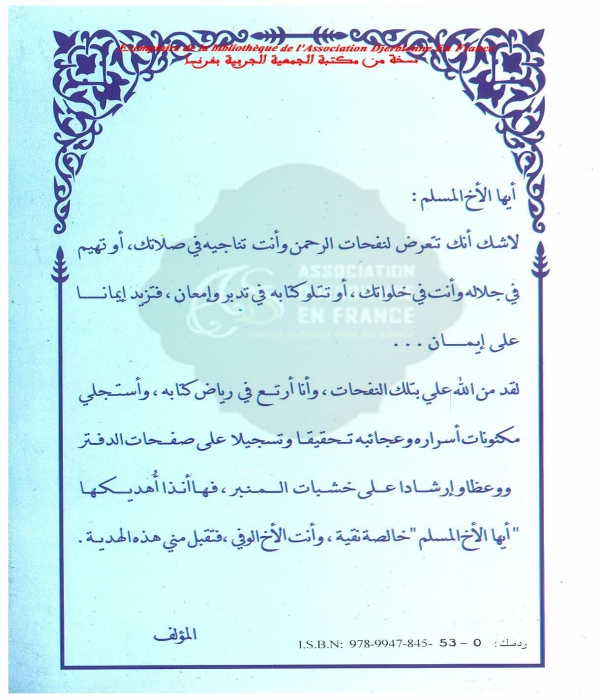 Exemplaire de la bibliothèque de l'Association Djerbienne En France
نسخة من مكتبة الجمعية الجربية بفرنسا
أيها الأخ المسلم :
لاشك أنك تتعرض لنفحات الرحمن وأنت تناجيه في صلاتك، أو تهيم
في جلاله وأنت في خلواتك، أو تتلو كتابه في تدبر وإمعان، فتزيد إيمانا
على إيمان ...
لقد من الله علي بتلك النفحات، وأنا أرتع في رياض كتابه، وأستجلي
مكنونات أسراره وعجائبه تحقيقا وتسجيلا على صفحات الدفتر
ووعظا وإرشادا على خشبات المنبر، فهاأنذا أُهديكها
"أيها الأخ المسلم" خالصة نقية، وأنت الأخ الوفي، فتقبل مني هذه الهدية.
المؤلف
ردمك: I.S.B.N: 978-9947-845- 53 - 0
ASSOCIATION
EN FRANCE